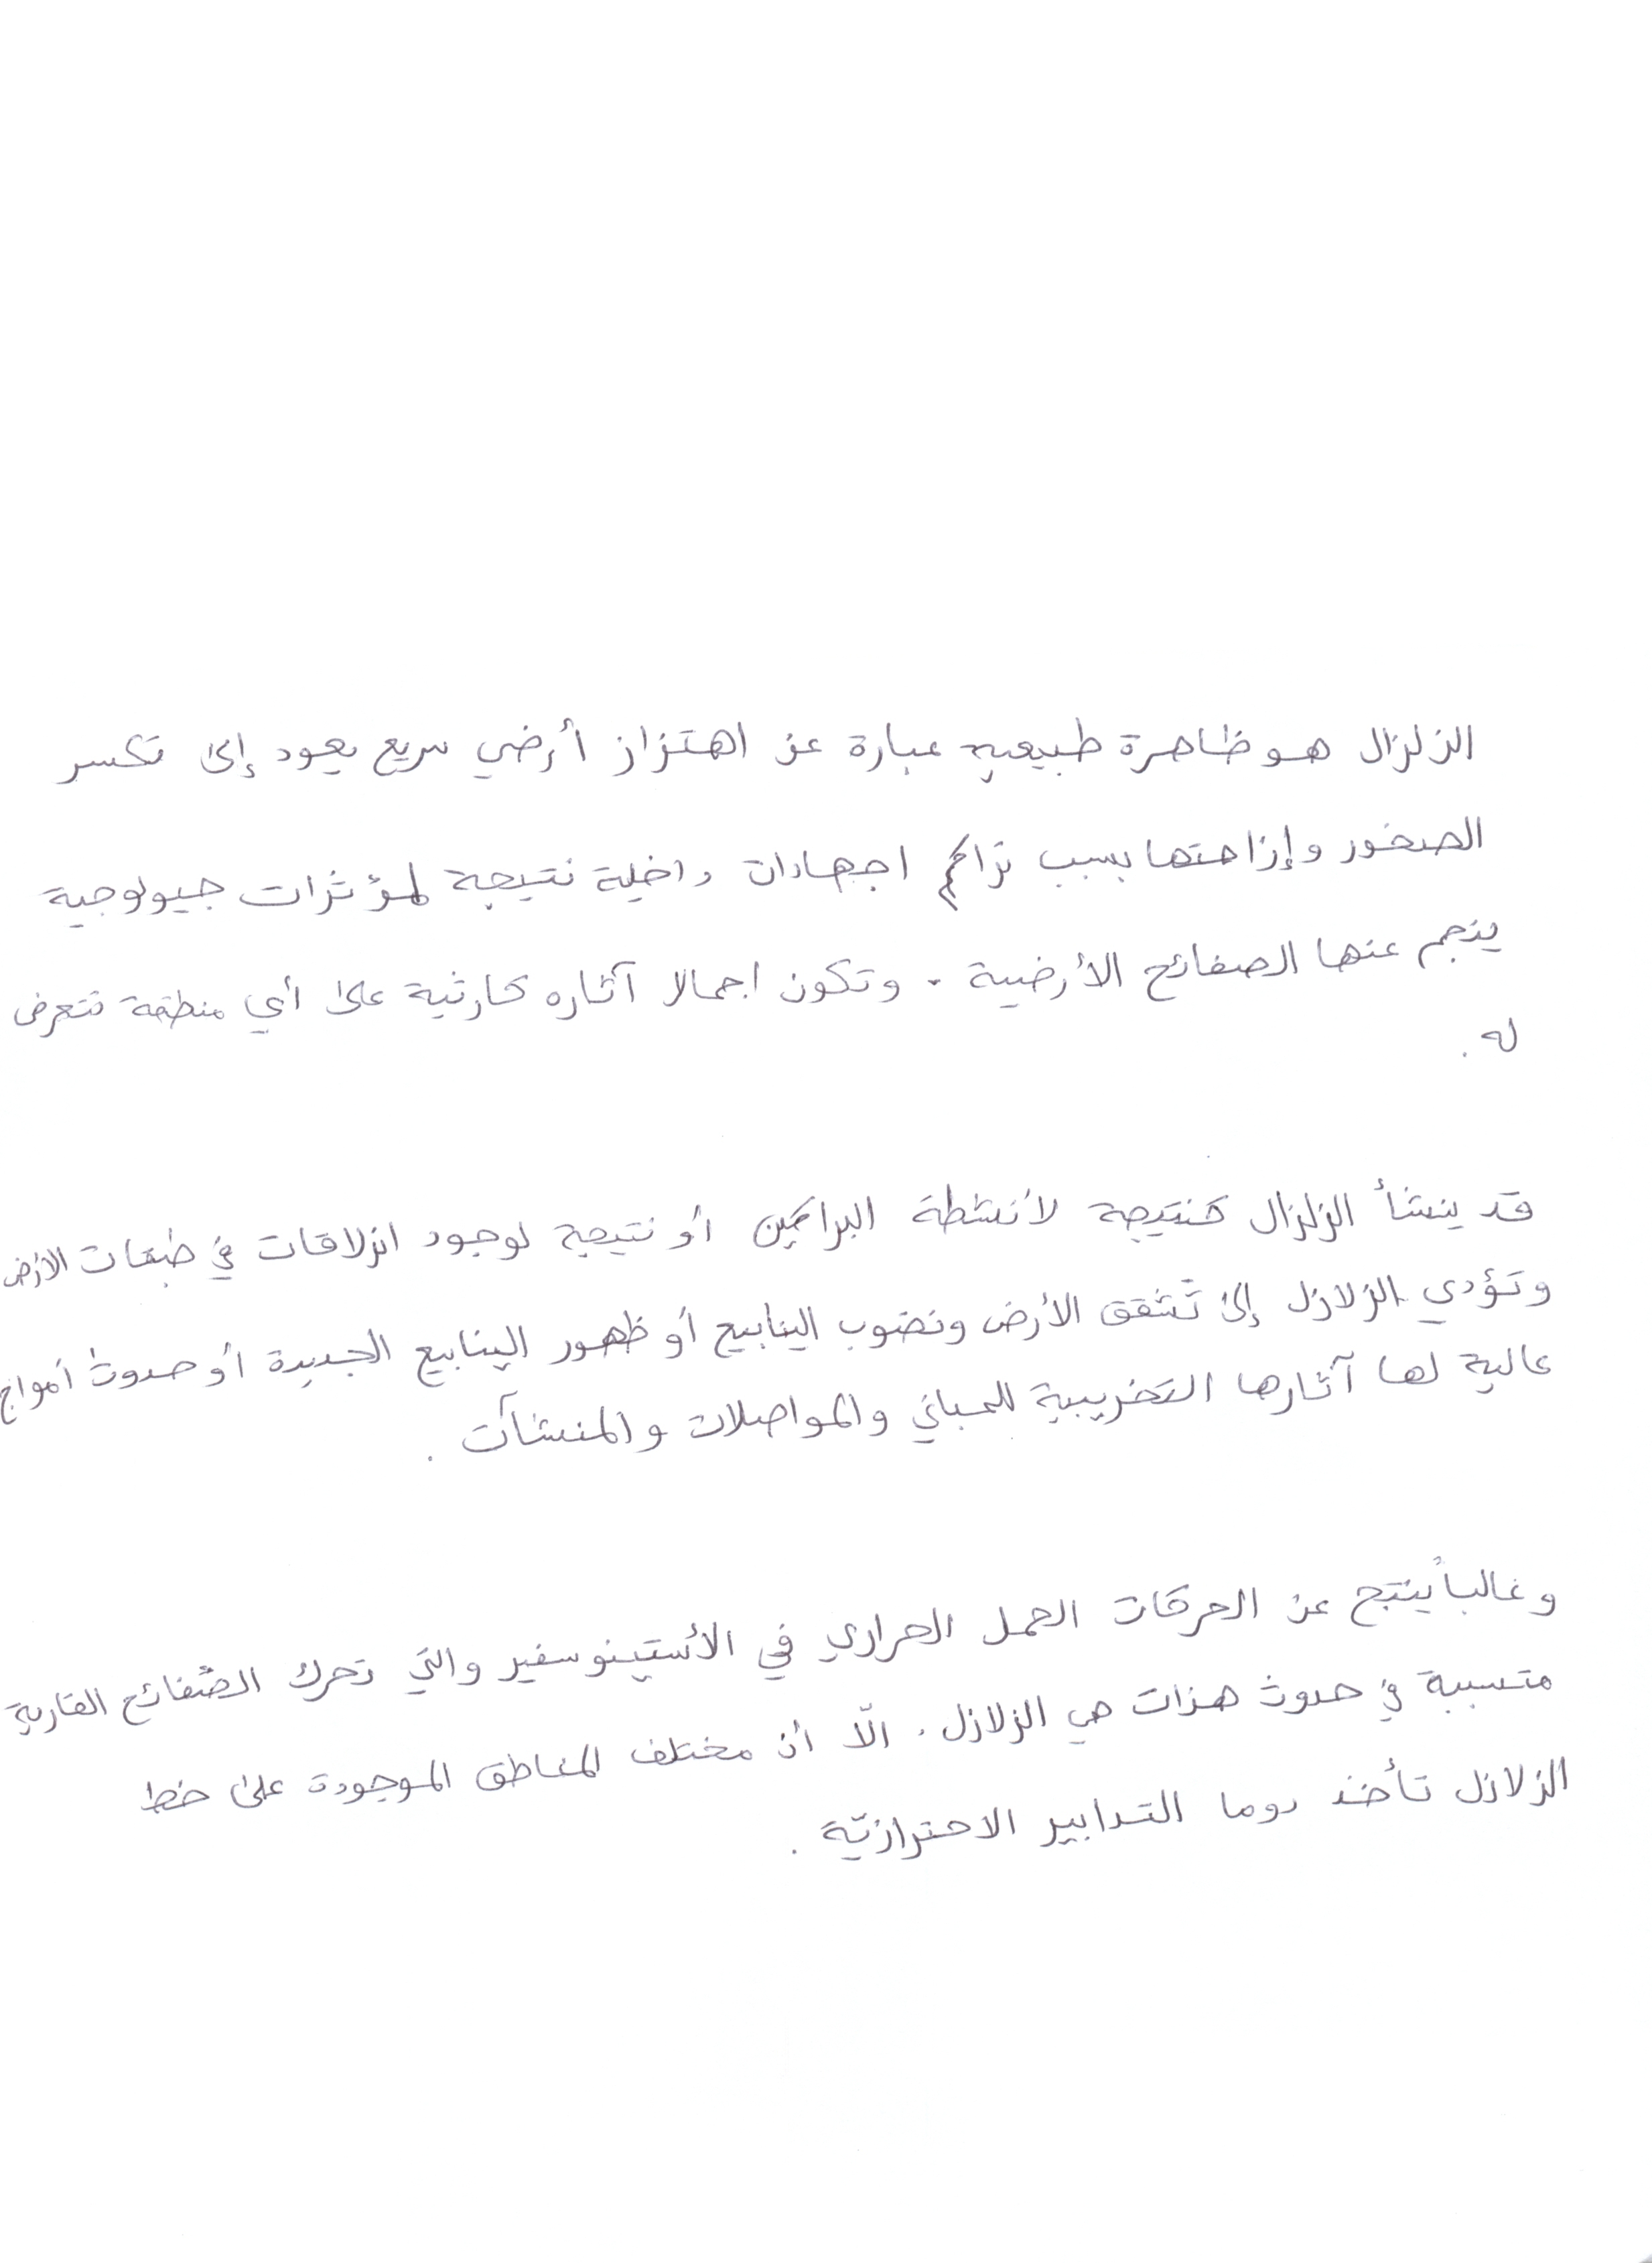 الزلزال هو ظاهرة طبيعيه عبارة عن اهتزاز أرضي سريع يعود إلى تكسر
الصخور وإزاحتها بسبب تراكم اجهادات داخلية نتيجة لمؤثرات جيولوجية
ينجم عنها الصفائح الأرضية . وتكون اجمالا آثاره كارثية على أي منطقة تتعرض
له .
قد ينشأ الزلزال كنتيجة لأنشطة البراكين أو نتيجة لوجود انزلاقات في طبقات الأرض
وتؤدي الزلازل إلى تشقق الأرض ونضوب الينابيع أو ظهور الينابيع الجديدة أو حدوث أمواج
عالية لها آثارها التخريبية للمباني والمواصلات والمنشآت .
وغالباً ينتج عن الحركات الحمل الحراري في الأستينوسفير والتي تحرك الصفائح القارية
متسببة في حدوث هزات هي الزلازل . الّا أن مختلف المناطق الموجودة على خط
الزلازل تأخذ دوما التدابير الاحترازيّة .